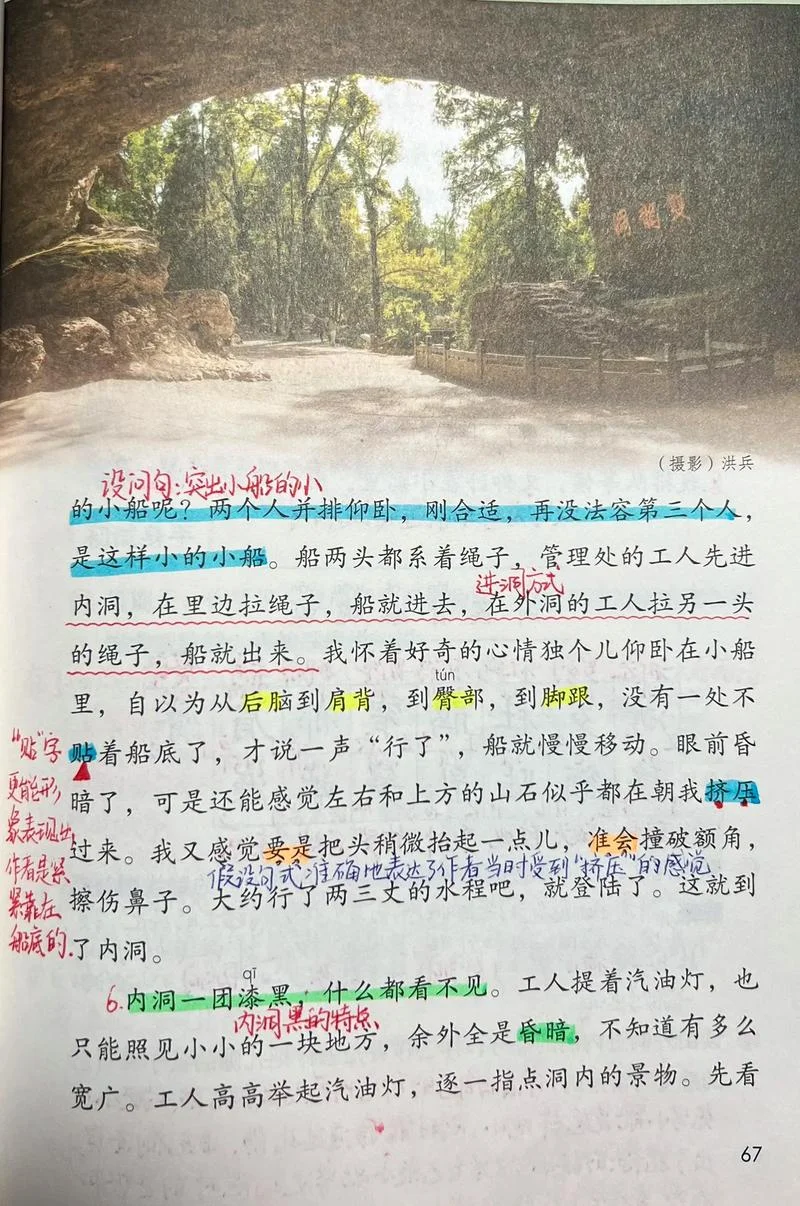 双龙洞
（摄影）洪兵
设问句:突出小船的小
的小船呢？两个人并排仰卧，刚合适，再没法容第三个人，
是这样小的小船。船两头都系着绳子，管理处的工人先进
进洞方式
内洞，在里边拉绳子，船就进去，在外洞的工人拉另一头
的绳子，船就出来。我怀着好奇的心情独个儿仰卧在小船
tún
里，自以为从后脑到肩背，到臀部，到脚跟，没有一处不
贴着船底了，才说一声“行了”，船就慢慢移动。眼前昏
暗了，可是还能感觉左右和上方的山石似乎都在朝我挤压
过来。我又感觉要是把头稍微抬起一点儿，准会撞破额角，
假设句式准确地表达了作者当时受到“挤压”的感觉
擦伤鼻子。大约行了两三丈的水程吧，就登陆了。这就到
了内洞。
“贴”字
更能形
象表现出
作者是紧
紧靠在
船底的.
qī
6.内洞一团漆黑，什么都看不见。工人提着汽油灯，也
内洞黑的特点
只能照见小小的一块地方，余外全是昏暗，不知道有多么
宽广。工人高高举起汽油灯，逐一指点洞内的景物。先看
67